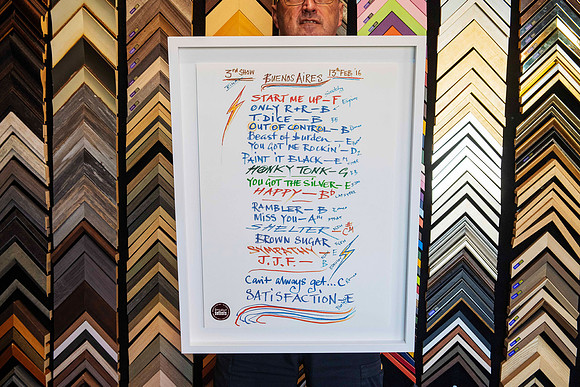 3RD SHOW BUENOS AIRES 13TH FEB '16
START ME UP - F
ONLY R+R - B
T. DICE - B
OUT OF CONTROL - B
Beast of burden - E
YOU GOT ME ROCKIN' - D
PAINT IT BLACK - E
HONKY TONK - G
YOU GOT THE SILVER - E
HAPPY - B
RAMBLER - B
MISS YOU - A
SHELTER
BROWN SUGAR
SYMPATHY - E
J.J.F. - B
Can't always get... C
SATISFACTION - E